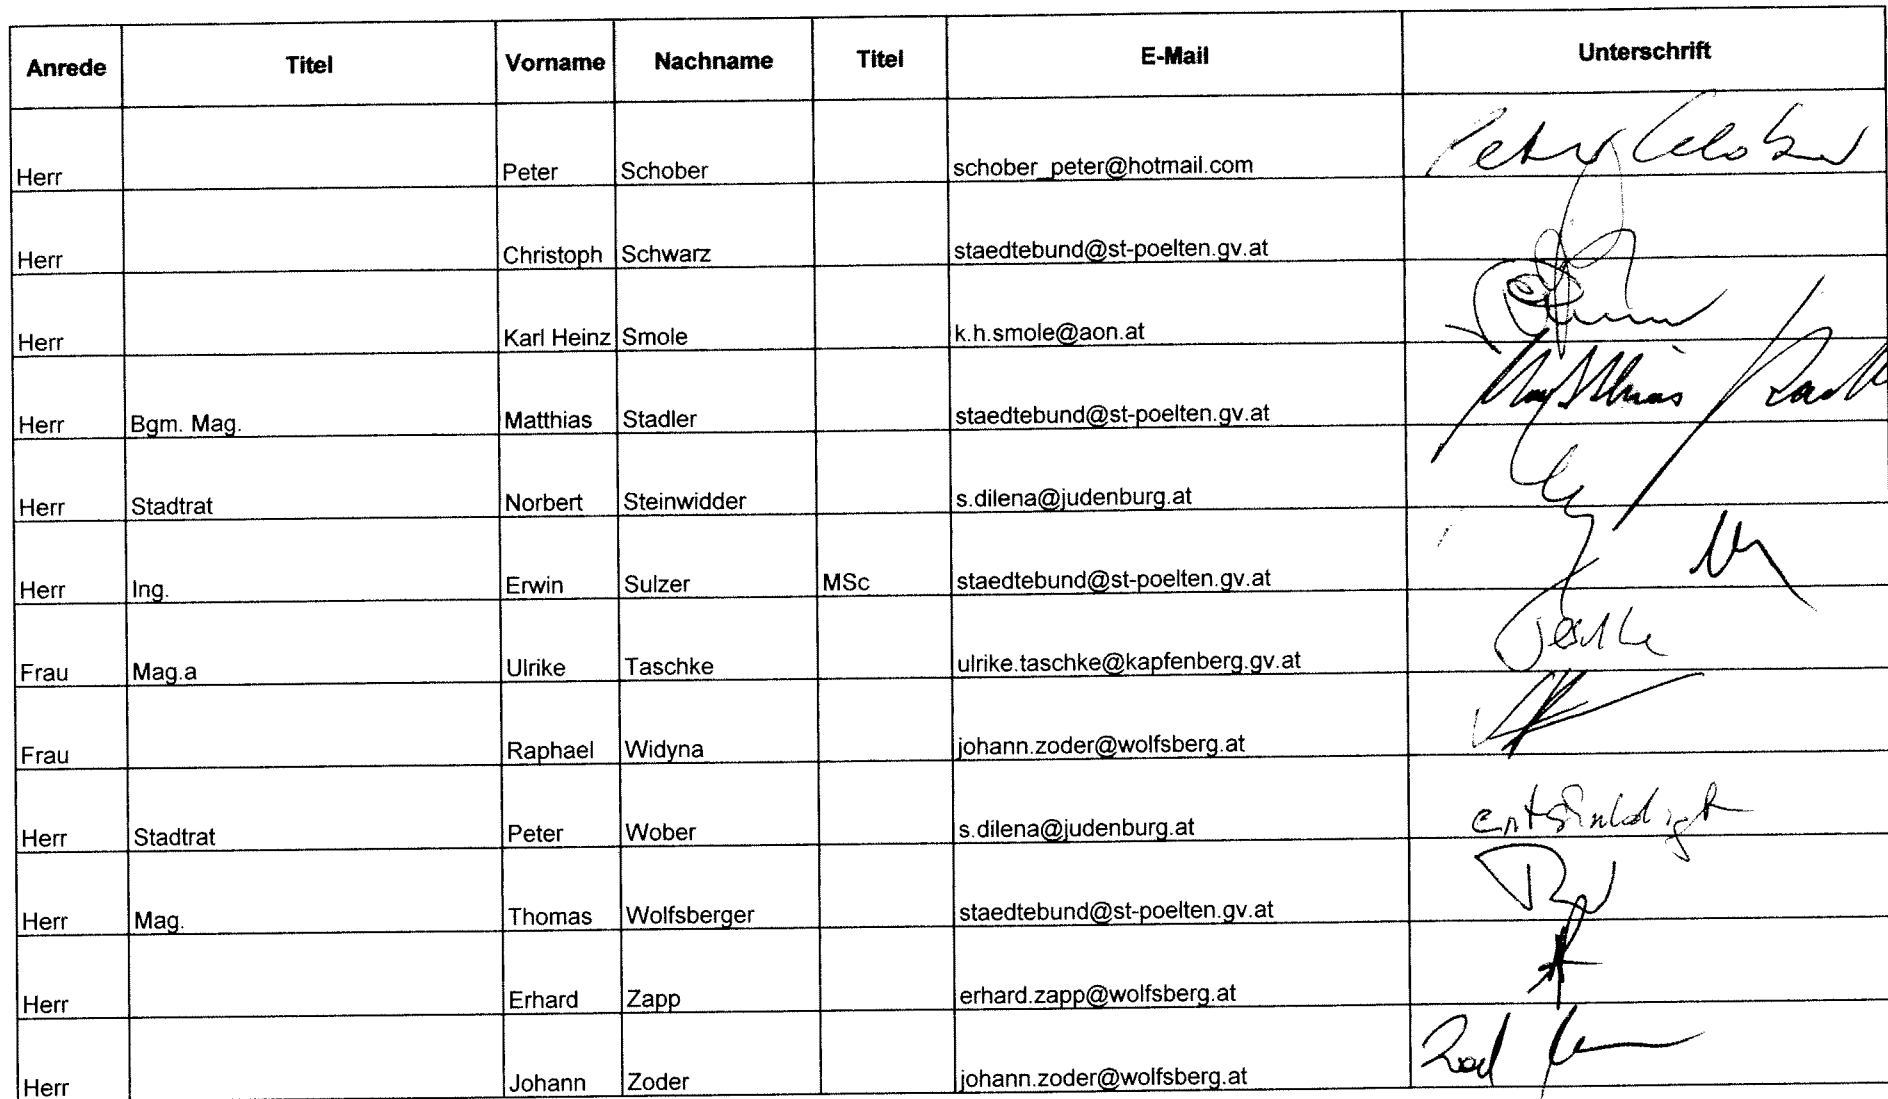 Anrede Titel Vorname Nachname Titel E-Mail Unterschrift
Herr Peter Schober schober_peter@hotmail.com Peter Schober
Herr Christoph Schwarz staedtebund@st-poelten.gv.at
Herr Karl Heinz Smole k.h.smole@aon.at
Herr Bgm. Mag. Matthias Stadler staedtebund@st-poelten.gv.at Matthias
Herr Stadtrat Norbert Steinwidder s.dilena@judenburg.at
Herr Ing. Erwin Sulzer MSc staedtebund@st-poelten.gv.at
Frau Mag.a Ulrike Taschke ulrike.taschke@kapfenberg.gv.at
Frau Raphael Widyna johann.zoder@wolfsberg.at
Herr Stadtrat Peter Wober s.dilena@judenburg.at entschuldigt
Herr Mag. Thomas Wolfsberger staedtebund@st-poelten.gv.at
Herr Erhard Zapp erhard.zapp@wolfsberg.at
Herr Johann Zoder johann.zoder@wolfsberg.at